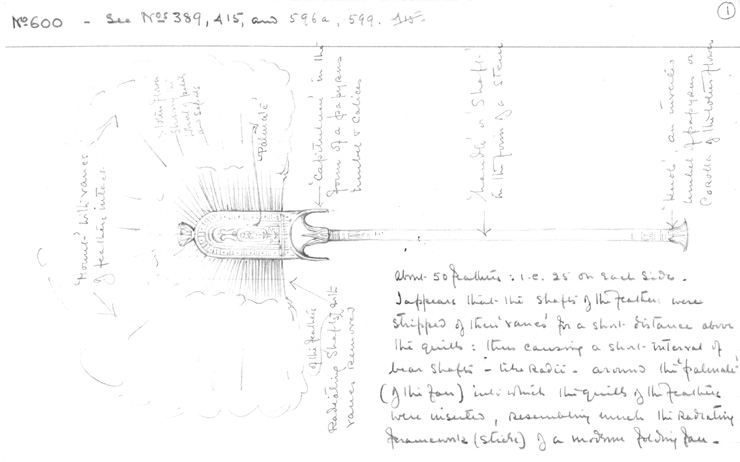 No 600 - See Nos 389, 415, and 596a, 599.
1
'Palmate'
'Capitulum' in the
form of a papyrus
umbel & calices
'Handle' or 'Shaft'
in the form of a stem
'Knob', an inverted
umbel of papyrus or
Corolla of the lotus flower
'Mount' with vanes
of feathers intact
Radiating Shafts with
of the feathers
vanes removed
About 50 feathers : i.e. 25 on each side.
It appears that the shafts of the feathers were
stripped of their 'vanes' for a short distance above
the quills : thus causing a short interval of
bear shafts - like radii - around the 'palmate'
(of the fan) into which the quills of the feathers
were inserted, resembling much the radiating
framework (sticks) of a modern folding fan.